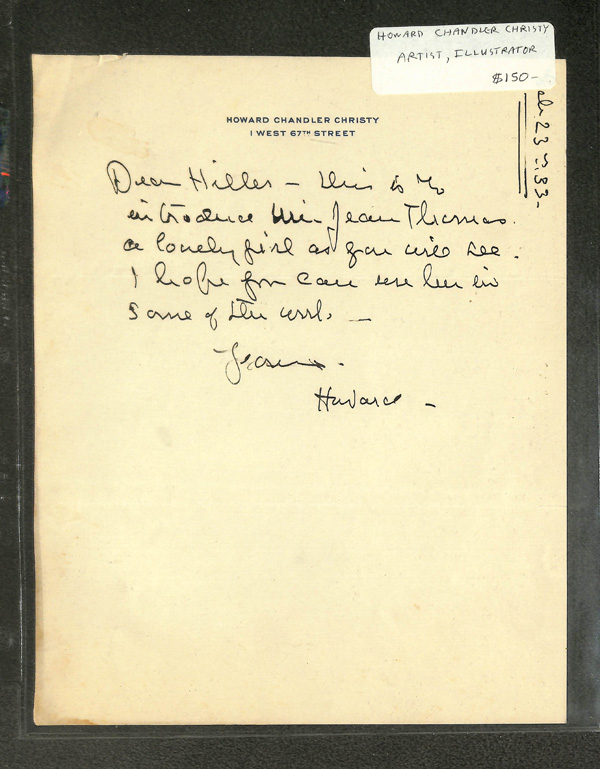 HOWARD CHANDLER CHRISTY
ARTIST, ILLUSTRATOR
$150-
HOWARD CHANDLER CHRISTY
1 WEST 67TH STREET
23
33-
Dear Hiller - this is to
introduce Miss Jean Thomas.
a lovely girl as you will see.
I hope you can use her in
some of the work. —
Yours.
Howard -